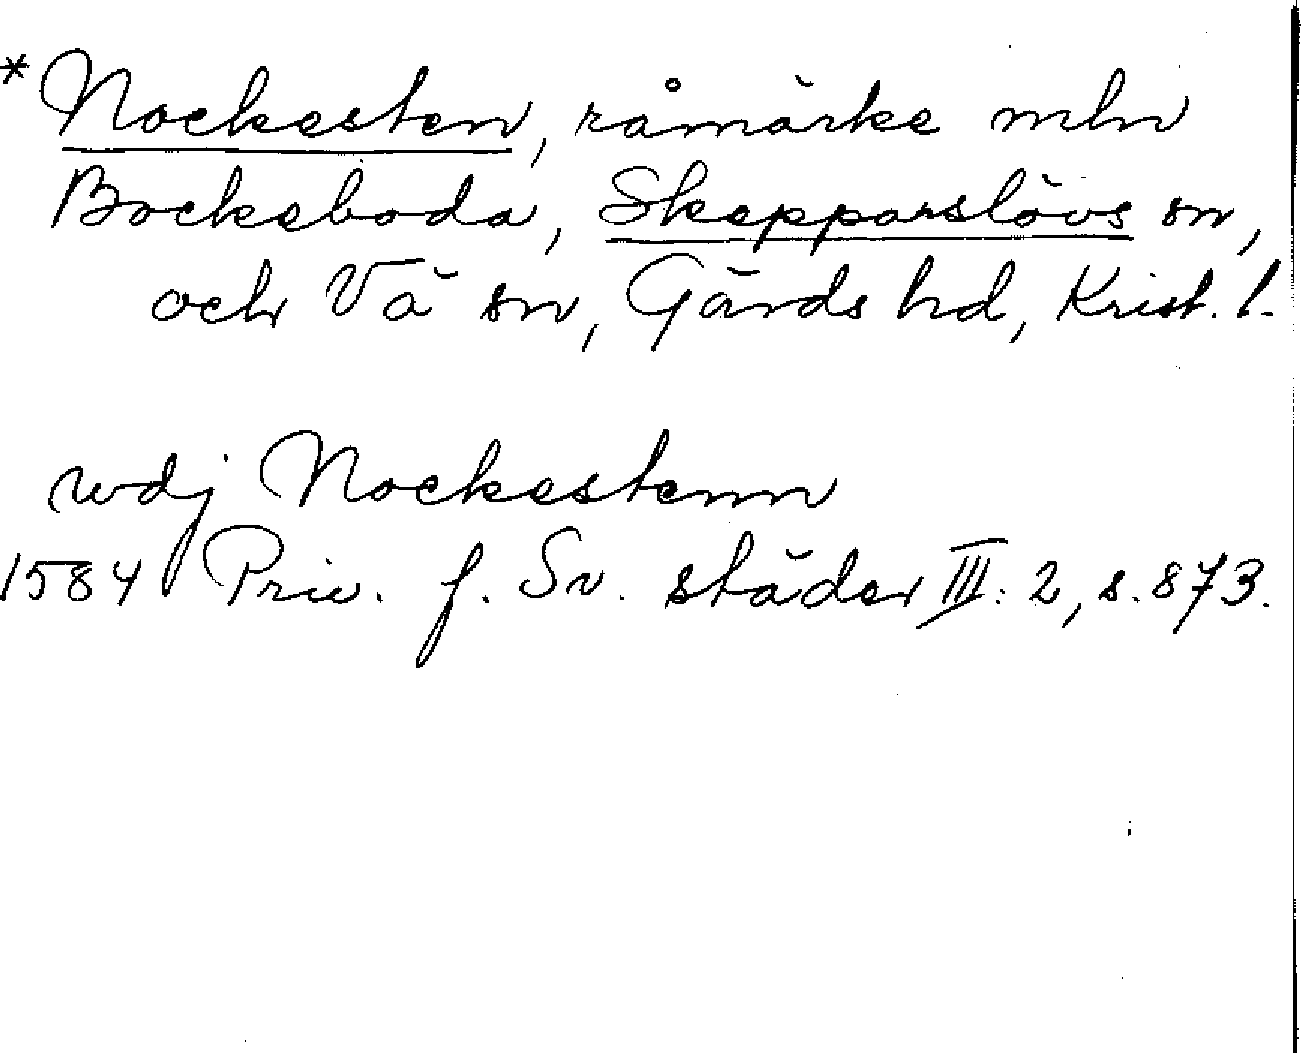 *Nockesten, råmärke mln
Bockeboda, Skepparslövs sn,
och Vä sn, Gärds hd, Krist. l.
wdj Nockestenn
1584 Priv. f. Sv. städer III: 2, s. 873.